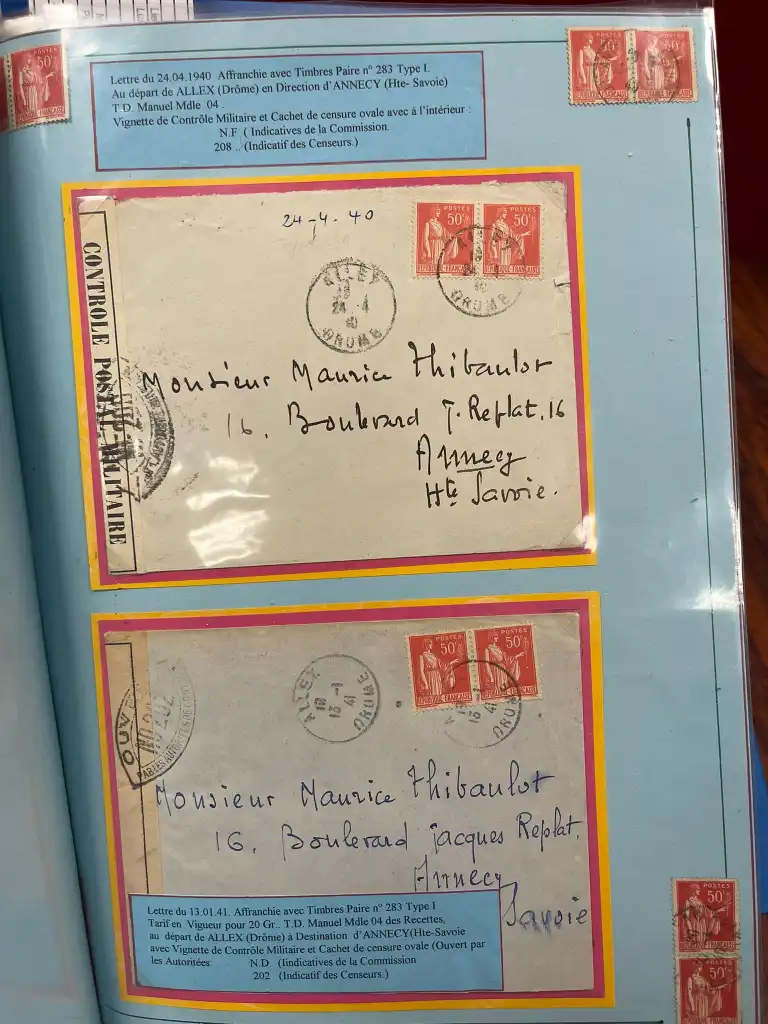 50c
Lettre du 24.04.1940 Affranchie avec Timbres Paire n° 283 Type I.
Au départ de ALLEX (Drôme) en Direction d'ANNECY (Hte- Savoie)
T.D. Manuel Mdle 04 .
Vignette de Contrôle Militaire et Cachet de censure ovale avec à l'intérieur :
N.F ( Indicatives de la Commission.
208 .. (Indicatif des Censeurs.)
24-4-40
POSTES POSTES
50c 50c
REPUBLIQUE FRANÇAISE REPUBLIQUE FRANÇAISE
ALLEX
24 -4
40
DROME
ALLEX
40
DROME
CONTROLE POSTAL MILITAIRE
Monsieur Maurice Thibaulot
16, Boulevard J. Replat, 16
Annecy
Hte Savoie.
POSTES POSTES
50c 50c
REPUBLIQUE FRANÇAISE REPUBLIQUE FRANÇAISE
ALLEX
13 -1
41
DROME
13 -1
41
DROME
OUVE
202
PAR LES AUTORITES
Monsieur Maurice Thibaulot
16, Boulevard Jacques Replat,
Annecy
Savoie
Lettre du 13.01.41. Affranchie avec Timbres Paire n° 283 Type I
Tarif en Vigueur pour 20 Gr.. T.D. Manuel Mdle 04 des Recettes,
au départ de ALLEX (Drôme) à Destination d'ANNECY(Hte-Savoie
avec Vignette de Contrôle Militaire et Cachet de censure ovale (Ouvert par
les Autoritées: N.D (Indicatives de la Commission
202 (Indicatif des Censeurs.)
50c
50c